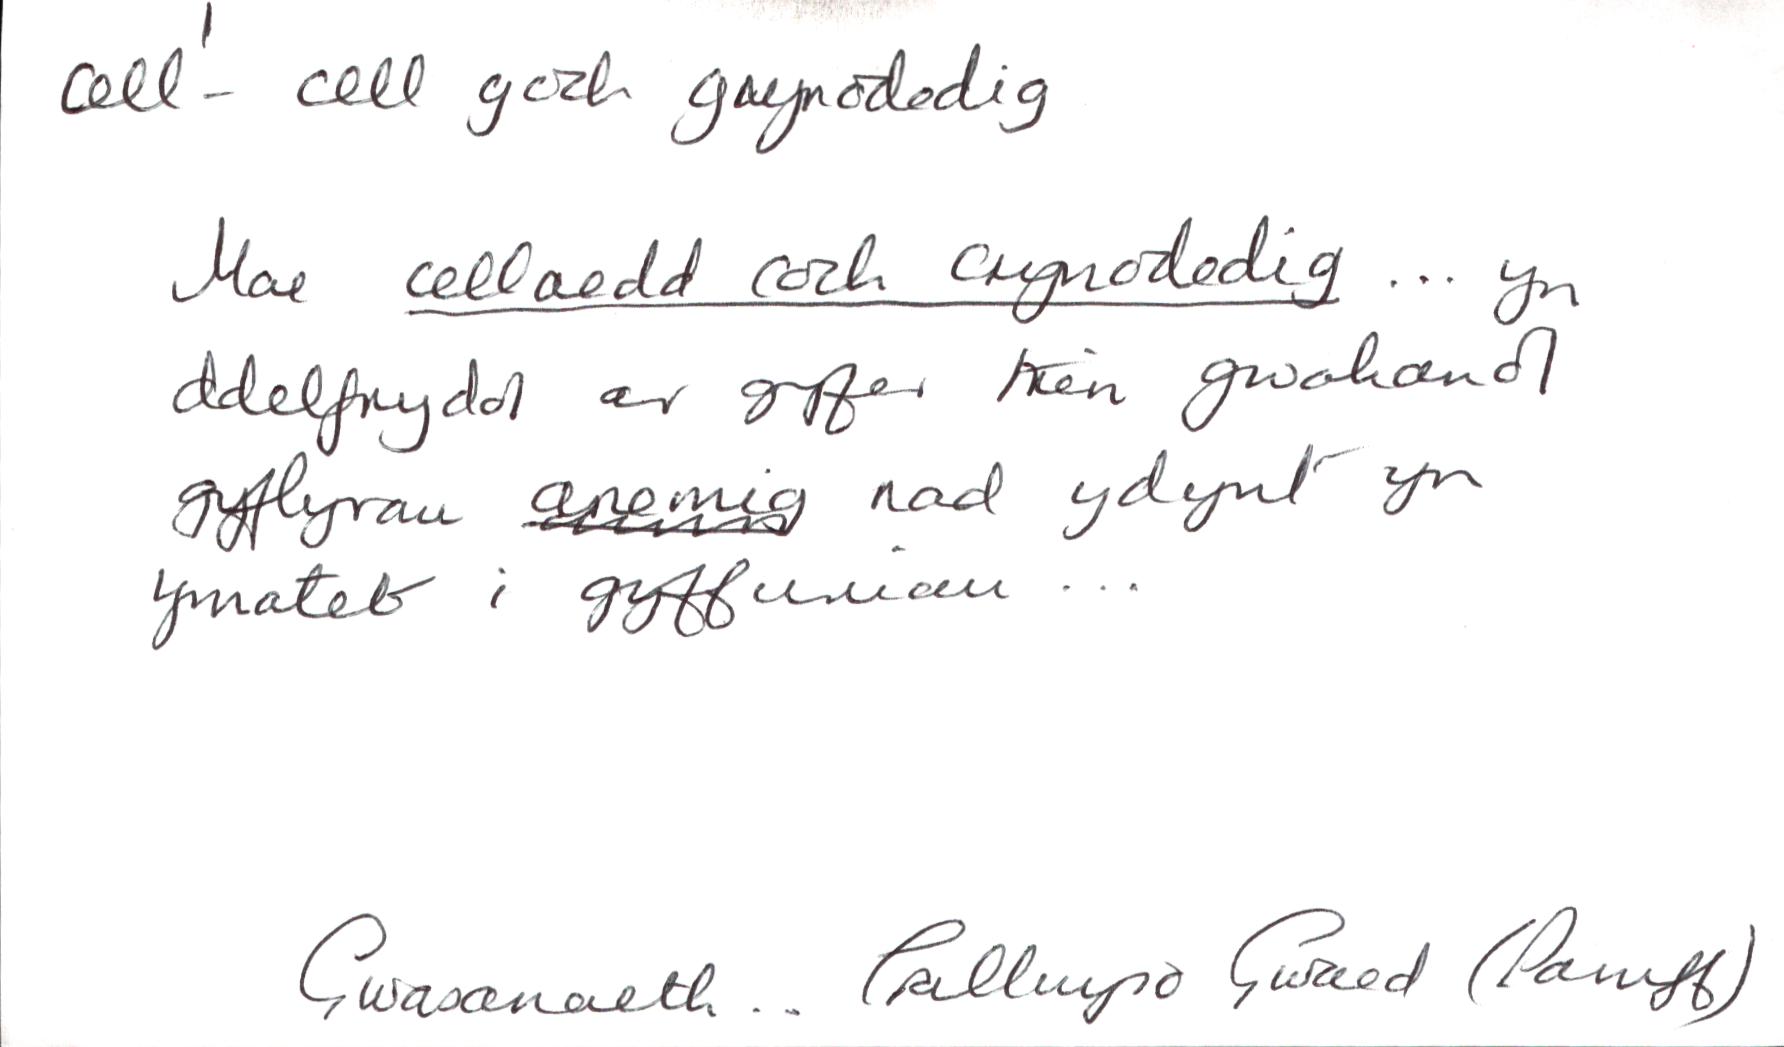 cell¹ - cell goch grynodedig
Mae cellaedd coch crynodedig ... yn
ddelfrydol ar gyfer trin gwahanol
gyflyrau anemig nad ydynt yn
ymateb i gyffuriau ...
Gwasanaeth .. Trallwyso Gwaed (Pamff)